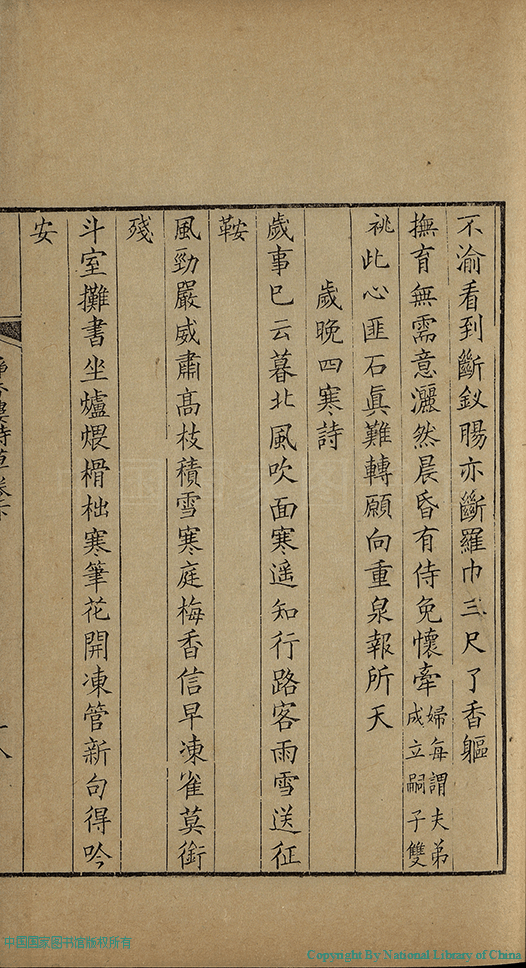 不渝看到斷釵腸亦斷羅巾三尺了香軀
撫育無需意灑然晨昏有侍免懷牽婦每謂夫弟
成立嗣子雙
祧此心匪石眞難轉願向重泉報所天
歲晚四寒詩
歲事巳云暮北風吹面寒遥知行路客雨雪送征
鞍
風勁嚴威肅高枝積雪寒庭梅香信早凍雀莫銜
殘
斗室攤書坐爐煨榾柮寒筆花開凍管新句得吟
安
中国国家图书馆版权所有
Copyright By National Library of China